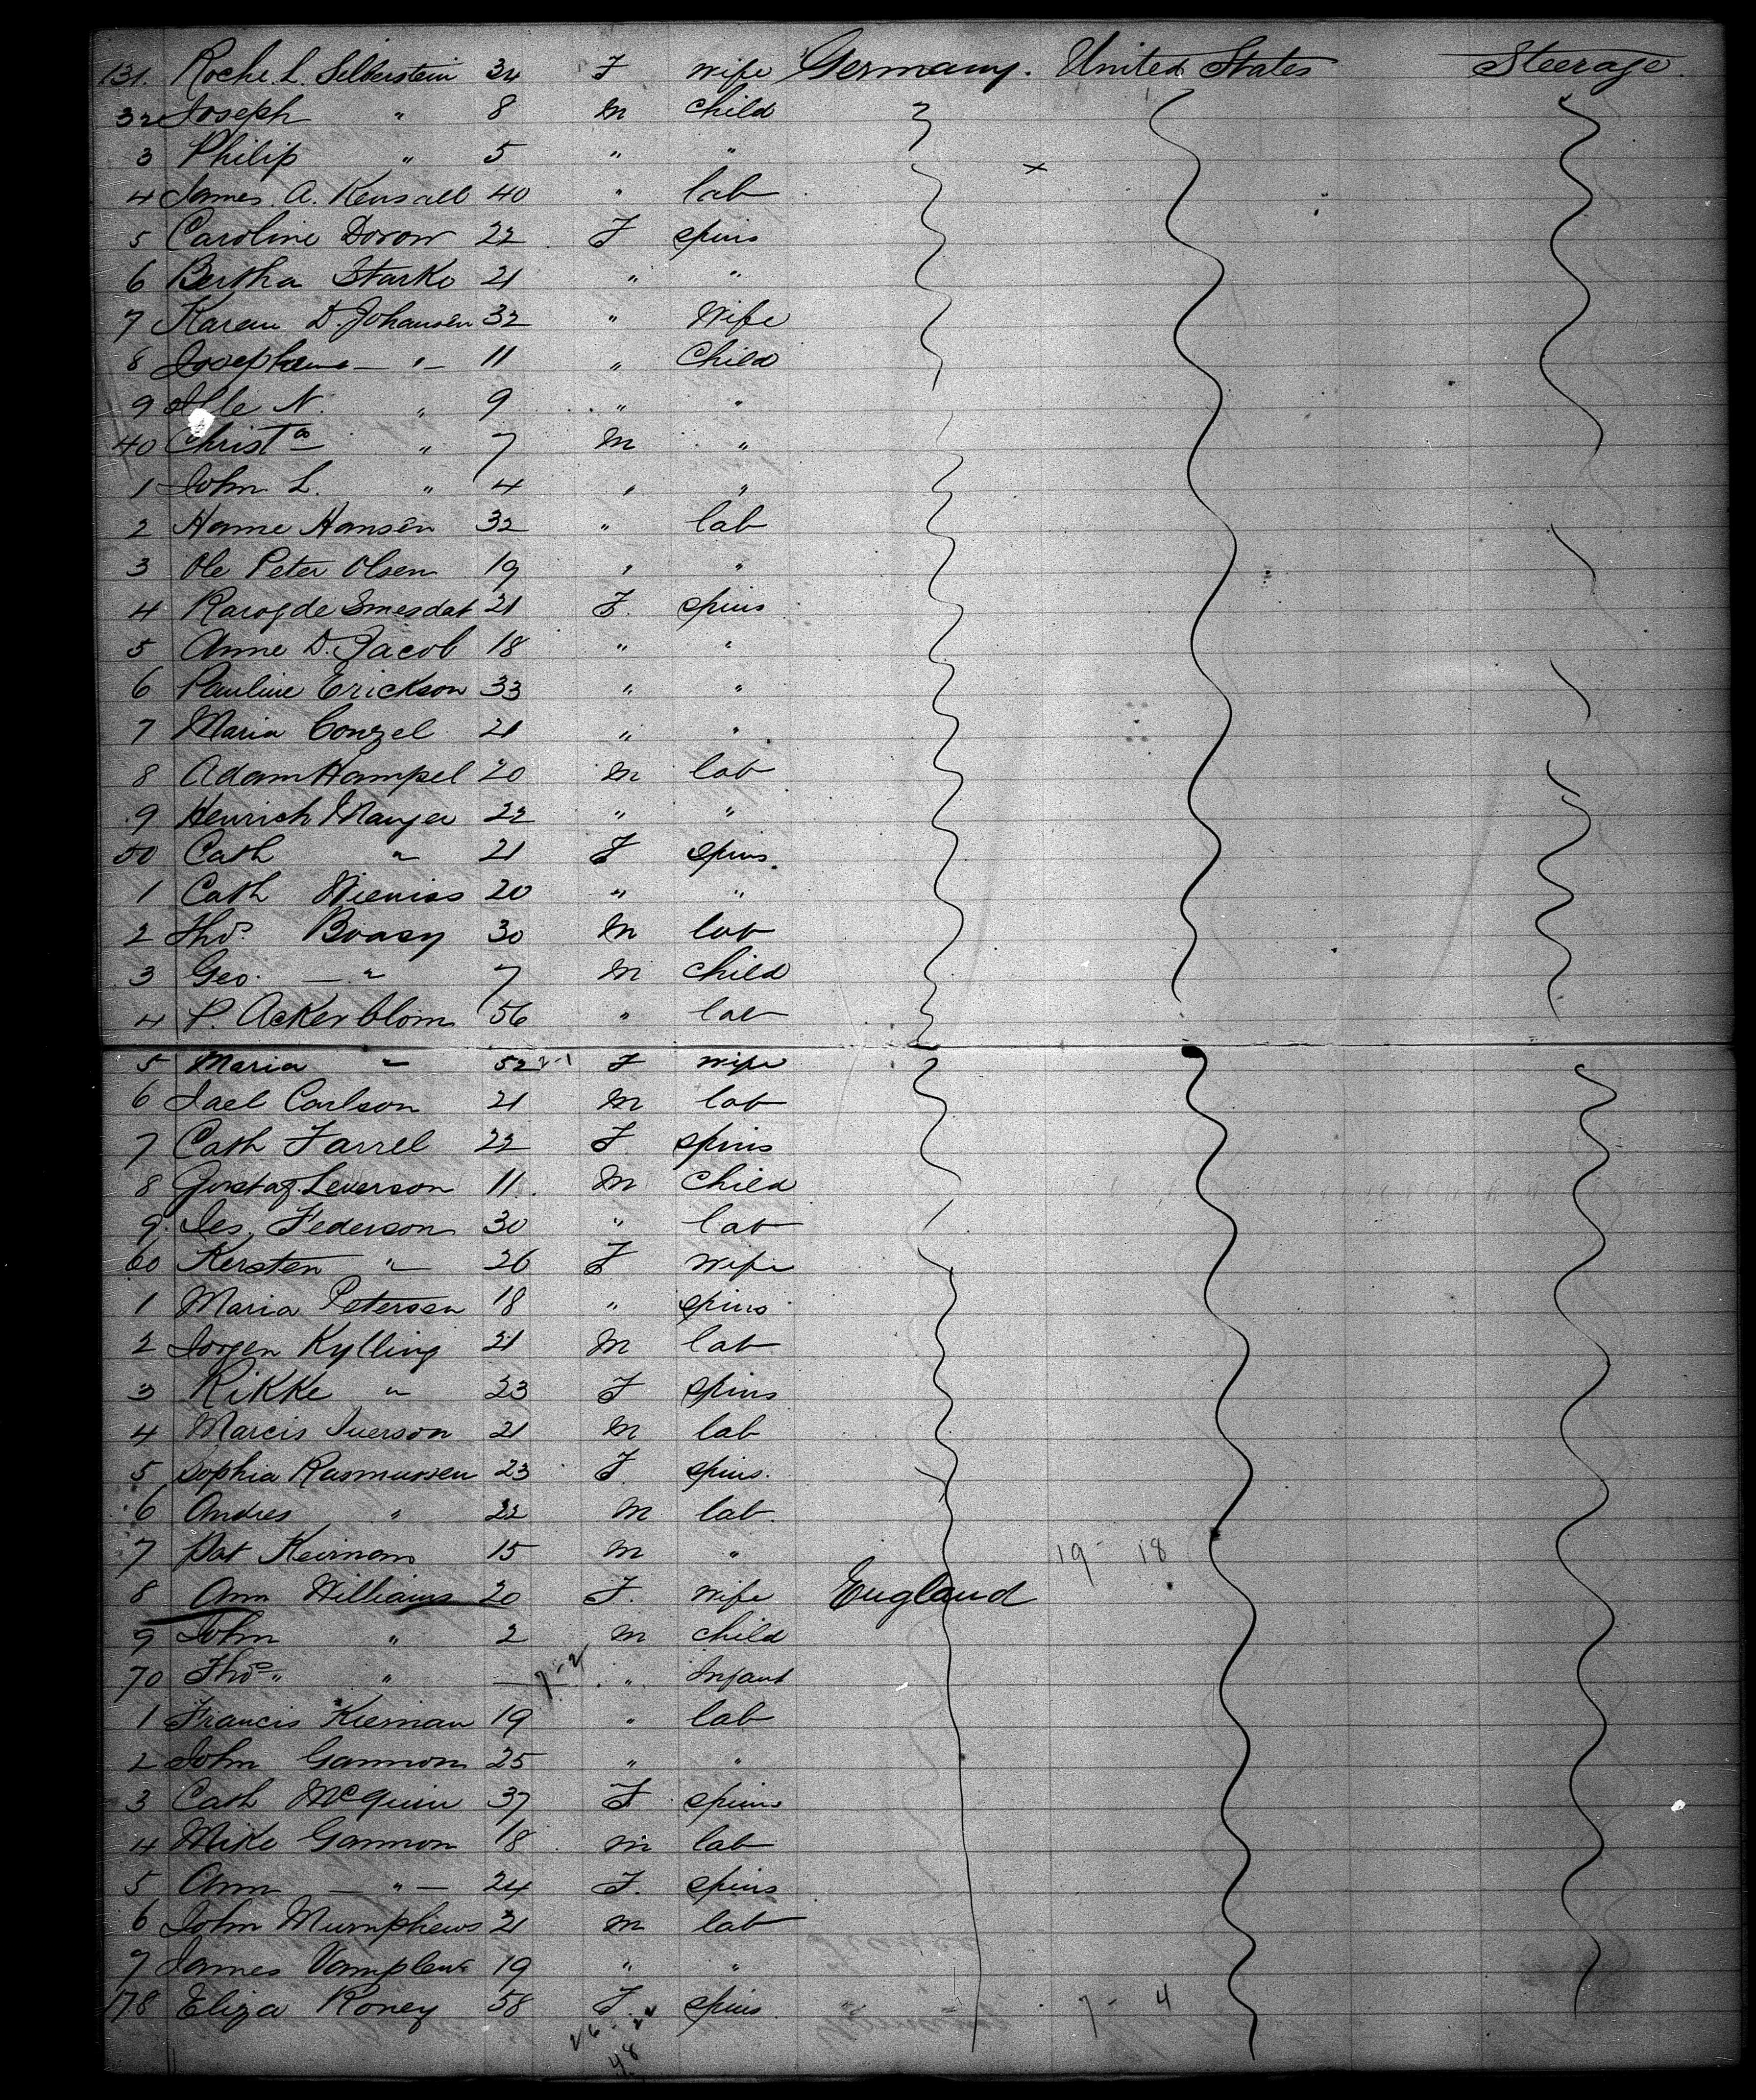 131. Roche L. Silberstein 34 F wife Germany. United States Steerage.
32 Joseph " 8 m child
3 Philip " 5 " "
4 James A. Kensall 40 " lab
5 Caroline Dorow 22 F spins
6 Bertha Starke 21 " "
7 Karen D. Johansen 32 " Wife
8 Josephine — " — 11 " Child
9 N. " 9 " "
40 Christ " 7 m "
1 John L. " 4 " "
2 Hanne Hansen 32 " lab
3 Ole Peter Olsen 19 " "
4 21 F. spins
5 Anne D. Jacob 18 " "
6 Pauline Erickson 33 " "
7 Maria Conzel 21 " "
8 Adam Hampel 20 m lab
9 Henrich Mayer 22 " "
50 Cath " 21 F spins.
1 Cath 20 " "
2 Thos. Boasy 30 m lab
3 Geo. — " 7 m child
4 P. Ackerblom 56 " lab
5 Maria " 52 F wife
6 Jael Carlson 21 m lab
7 Cath Farrel 22 F. spins
8 Gustaf. Leverson 11. m Child
9. Jes. Federson 30 " lab
60 Kersten " 26 F wife
1 Maria Petersen 18 " spins
2 Jorgen Kylling 21 m lab
3 Rikke " 23 F spins
4 Marcis Iverson 21 m lab
5 Sophia Rasmussen 23 F. spins.
6 Andres " 22 m lab.
7 Pat Keirnan 15 m " 19 - 18
8 Ann Williams 20 F. wife England
9 John " 2 m child
70 Thos. " — 7-2 " Infant
1 Francis Kiernan 19 " lab
2 John Gannon 25 " "
3 Cath McQuin 37 F spins
4 Mike Gannon 18 m lab
5 Ann — " — 24 F. spins
6 John Mumphiews 21 m lab
7 James Vamplew 19 " "
178 Eliza Roney 58 F. spins. 7 - 4
26 - 22
48